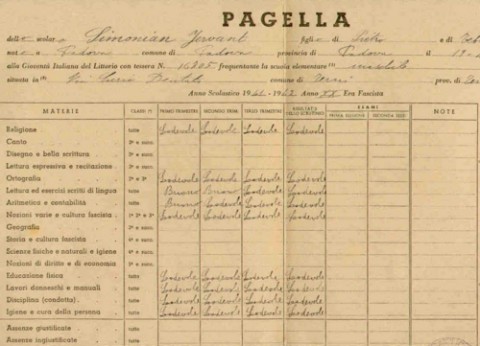 PAGELLA
dell scolar Simonian Jervant figli di e di
nat a Padova comune di Padova provincia di Padova il
alla Gioventù Italiana del Littorio con tessera N. 16805 frequentante la scuola elementare (1) maschile
situata in (2) comune di prov. di
Anno Scolastico 1941-1942 Anno XX Era Fascista
MATERIE CLASSI PRIMO TRIMESTRE SECONDO TRIM. TERZO TRIMESTRE RISULTATO DELLO SCRUTINIO ESAMI NOTE
PRIMA SESSIONE SECONDA SESS.
Religione tutte Lodevole Lodevole Lodevole Lodevole
Canto 2ª e succ.
Disegno e bella scrittura 2ª e succ.
Lettura espressiva e recitazione 2ª e succ.
Ortografia 2ª e 3ª Lodevole Lodevole Lodevole Lodevole
Lettura ed esercizi scritti di lingua tutte Buono Buono Lodevole Lodevole
Aritmetica e contabilità tutte Buono Lodevole Lodevole Lodevole
Nozioni varie e cultura fascista 1ª 2ª e 3ª Lodevole Lodevole Lodevole Lodevole
Geografia
Storia e cultura fascista
Scienze fisiche e naturali e igiene
Nozioni di diritto e di economia
Educazione fisica tutte Lodevole Lodevole Lodevole Lodevole
Lavori donneschi e manuali tutte Lodevole Lodevole Lodevole Lodevole
Disciplina (condotta) tutte Lodevole Lodevole Lodevole Lodevole
Igiene e cura della persona tutte Lodevole Lodevole Lodevole Lodevole
Assenze giustificate tutte
Assenze ingiustificate tutte